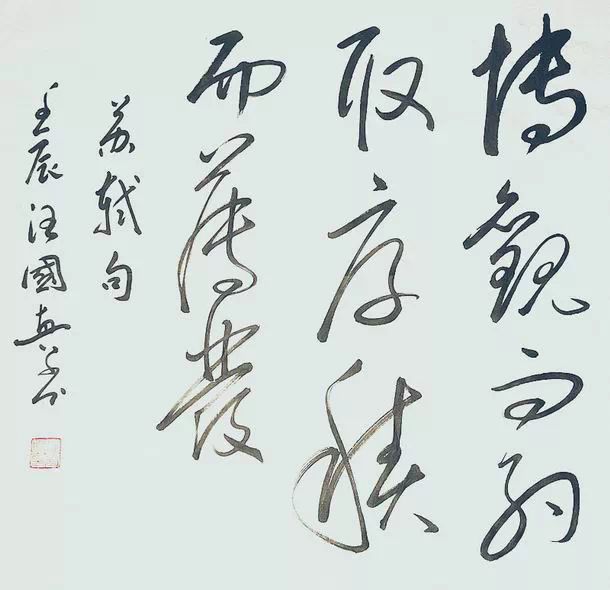 博觀而約
取厚積
而薄發
苏軾句
壬辰汪國真书